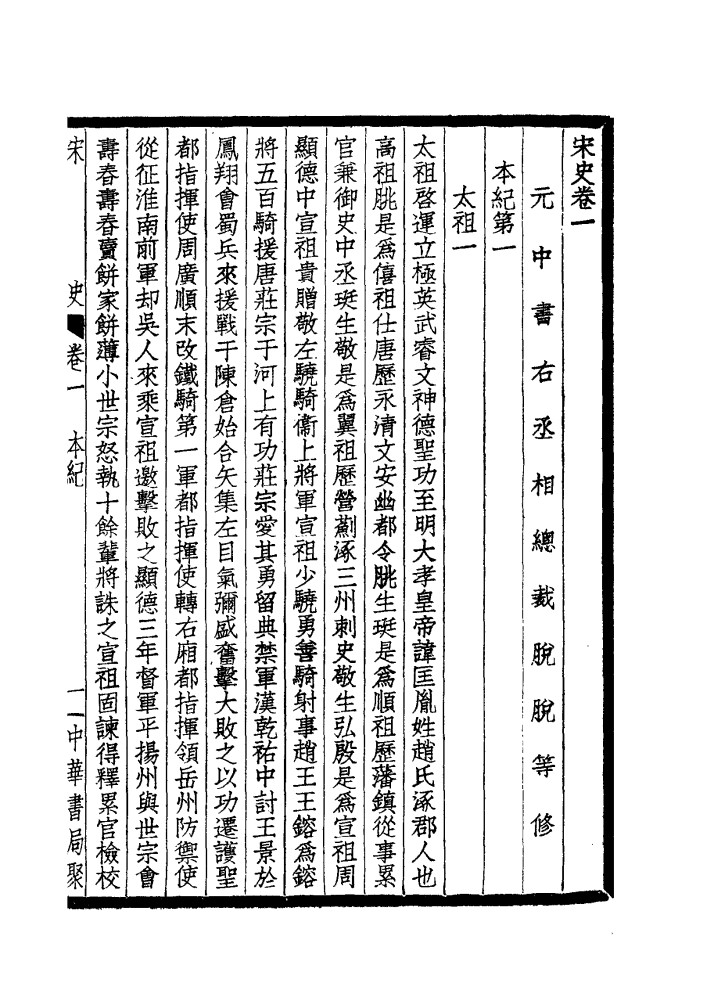 宋史卷一
元中書右丞相總裁脫脫等修
本紀第一
太祖一
太祖啓運立極英武睿文神德聖功至明大孝皇帝諱匡胤姓趙氏涿郡人也
高祖朓是爲僖祖仕唐歷永清文安幽都令朓生珽是爲順祖歷藩鎮從事累
官兼御史中丞珽生敬是爲翼祖歷營薊涿三州刺史敬生弘殷是爲宣祖周
顯德中宣祖貴贈敬左驍騎衞上將軍宣祖少驍勇善騎射事趙王王鎔爲鎔
將五百騎援唐莊宗于河上有功莊宗愛其勇留典禁軍漢乾祐中討王景於
鳳翔會蜀兵來援戰于陳倉始合矢集左目氣彌盛奮擊大敗之以功遷護聖
都指揮使周廣順末改鐵騎第一軍都指揮使轉右廂都指揮領岳州防禦使
從征淮南前軍却吳人來乘宣祖邀擊敗之顯德三年督軍平揚州與世宗會
壽春壽春賣餠家餠薄小世宗怒執十餘輩將誅之宣祖固諫得釋累官檢校
宋史 卷一 本紀 一 中華書局聚